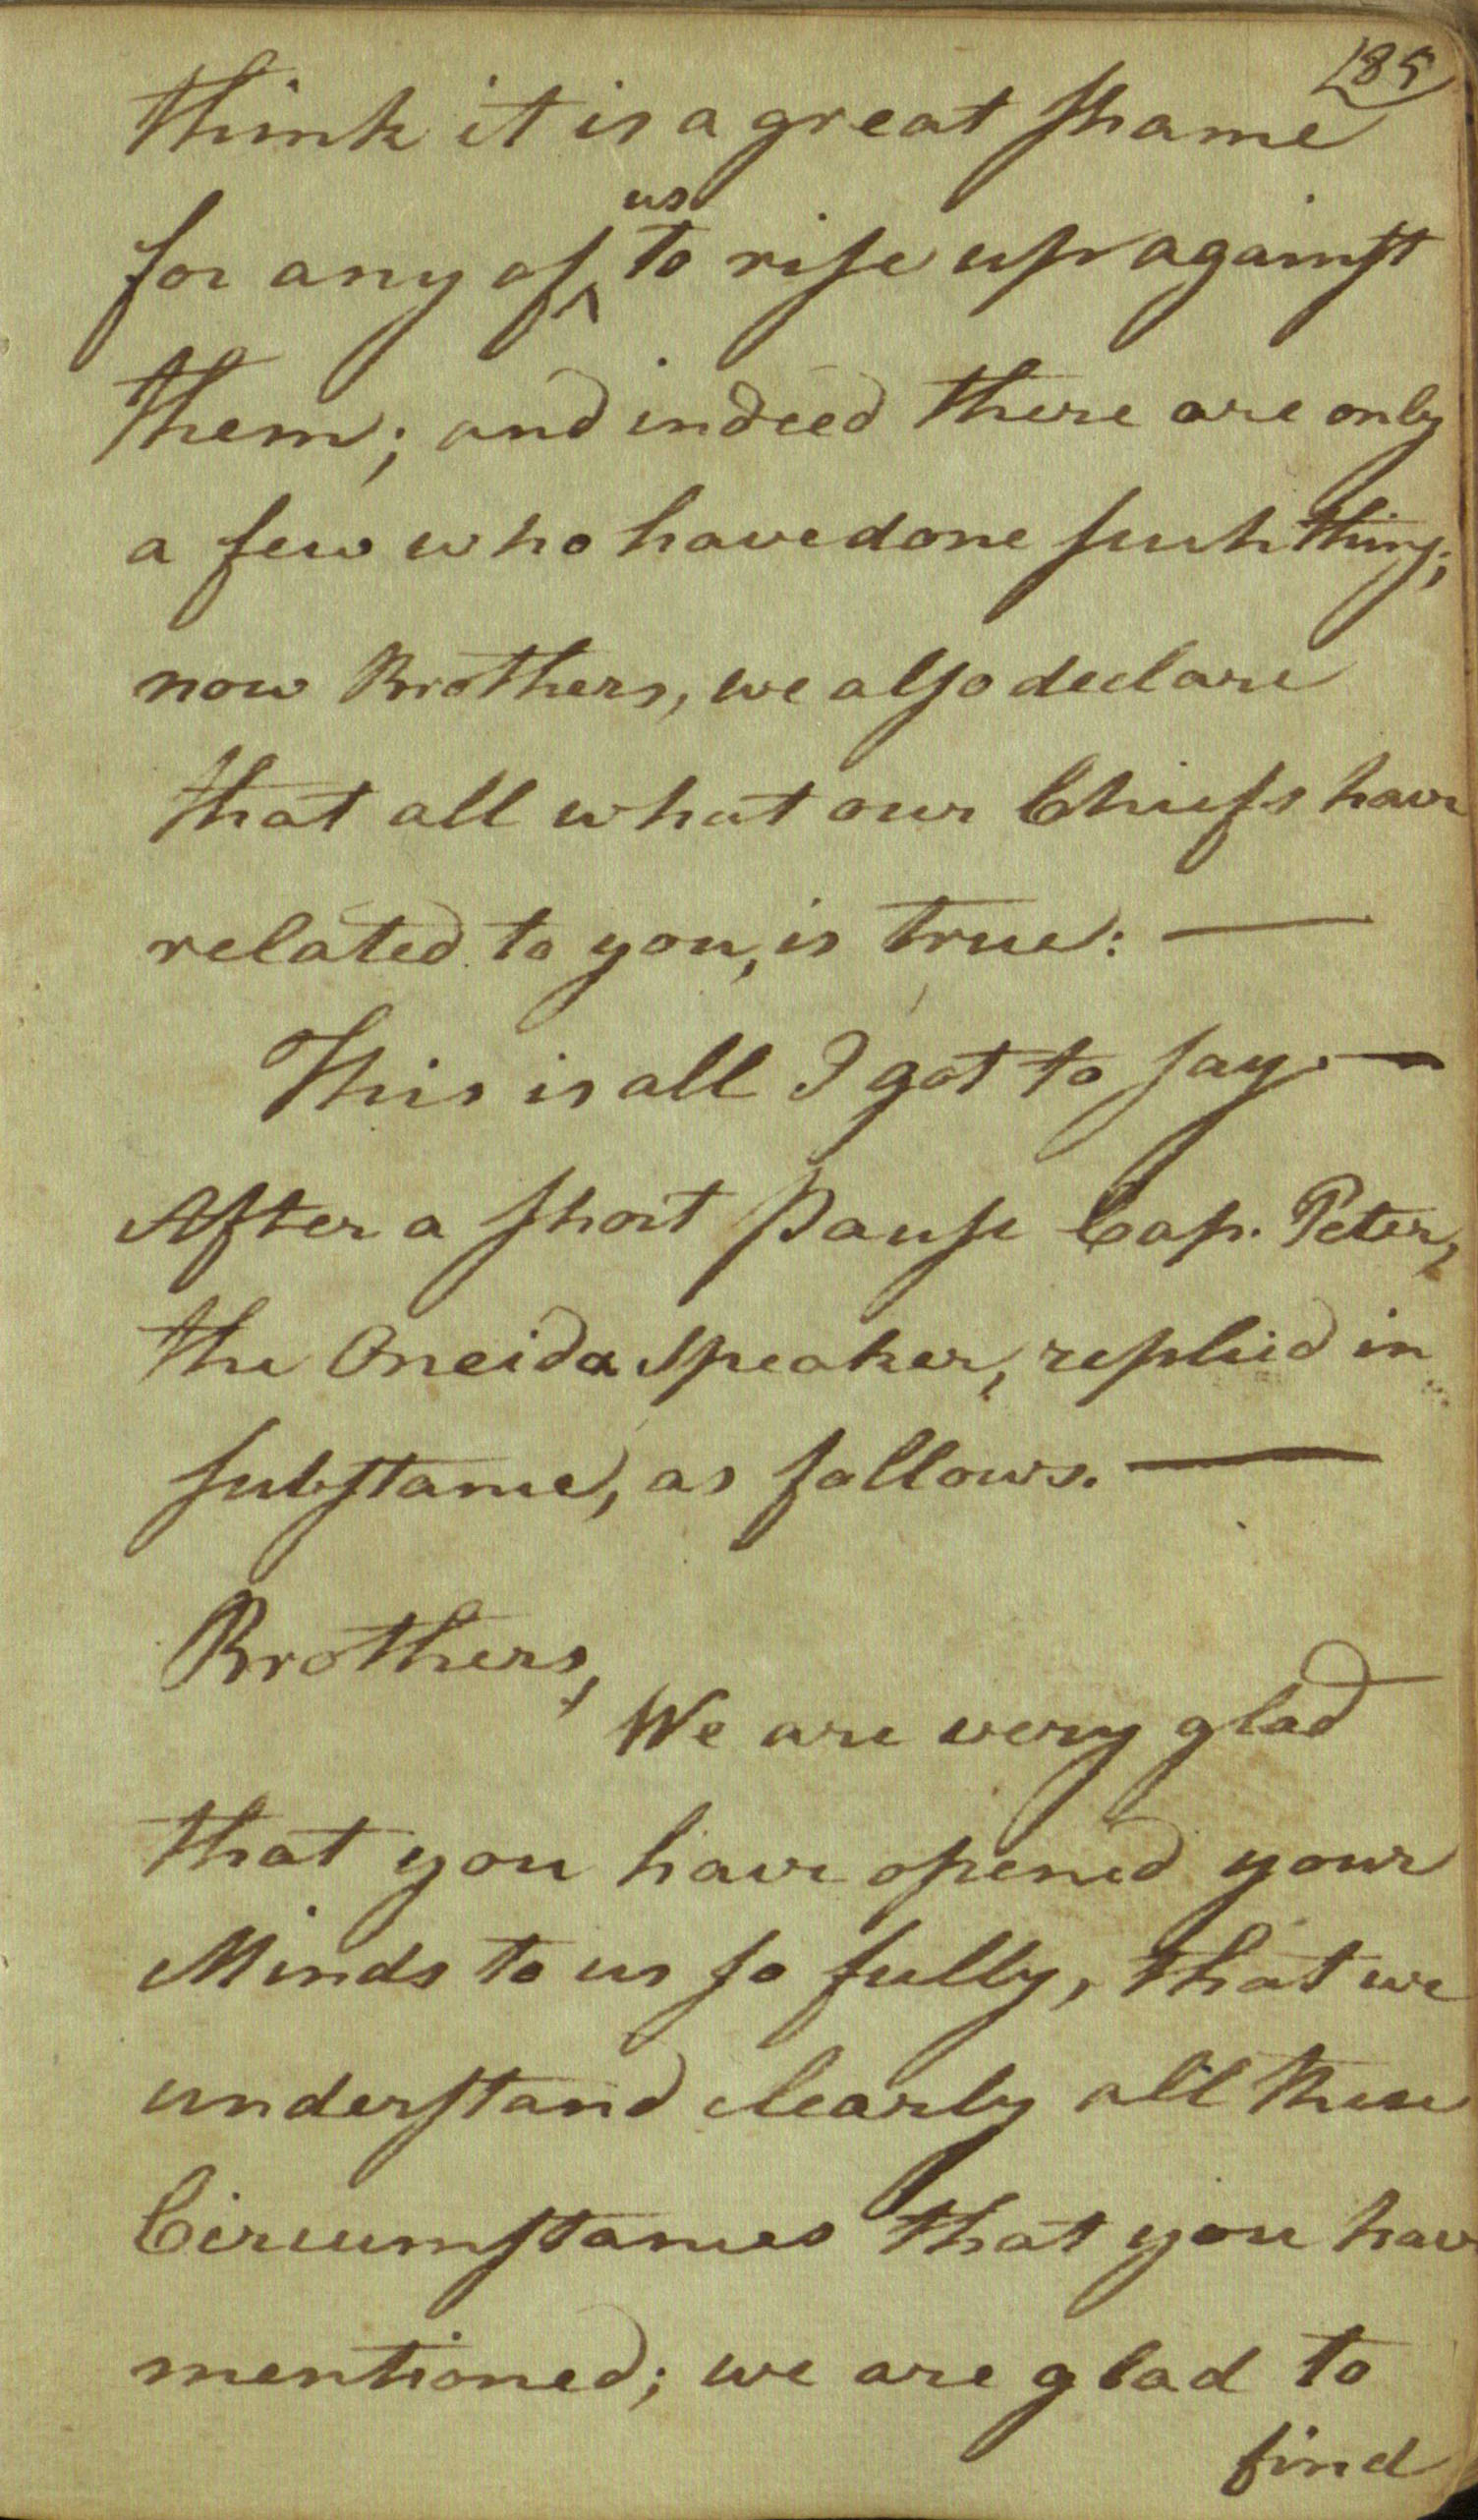 185
think it is a great shame
for any of ^us to rise up against
them; and indeed there are only
a few who have done such thing;
now Brothers, we also declare
that all what our Chiefs have
related to you, is true: —
This is all I got to say. —
After a short Pause Cap. Peter,
the Oneida Speaker, replied in
substance, as follows. —
Brothers,
We are very glad
that you have opened your
Minds to us so fully, that we
understand clearly all these
Circumstances that you have
mentioned; we are glad to
find